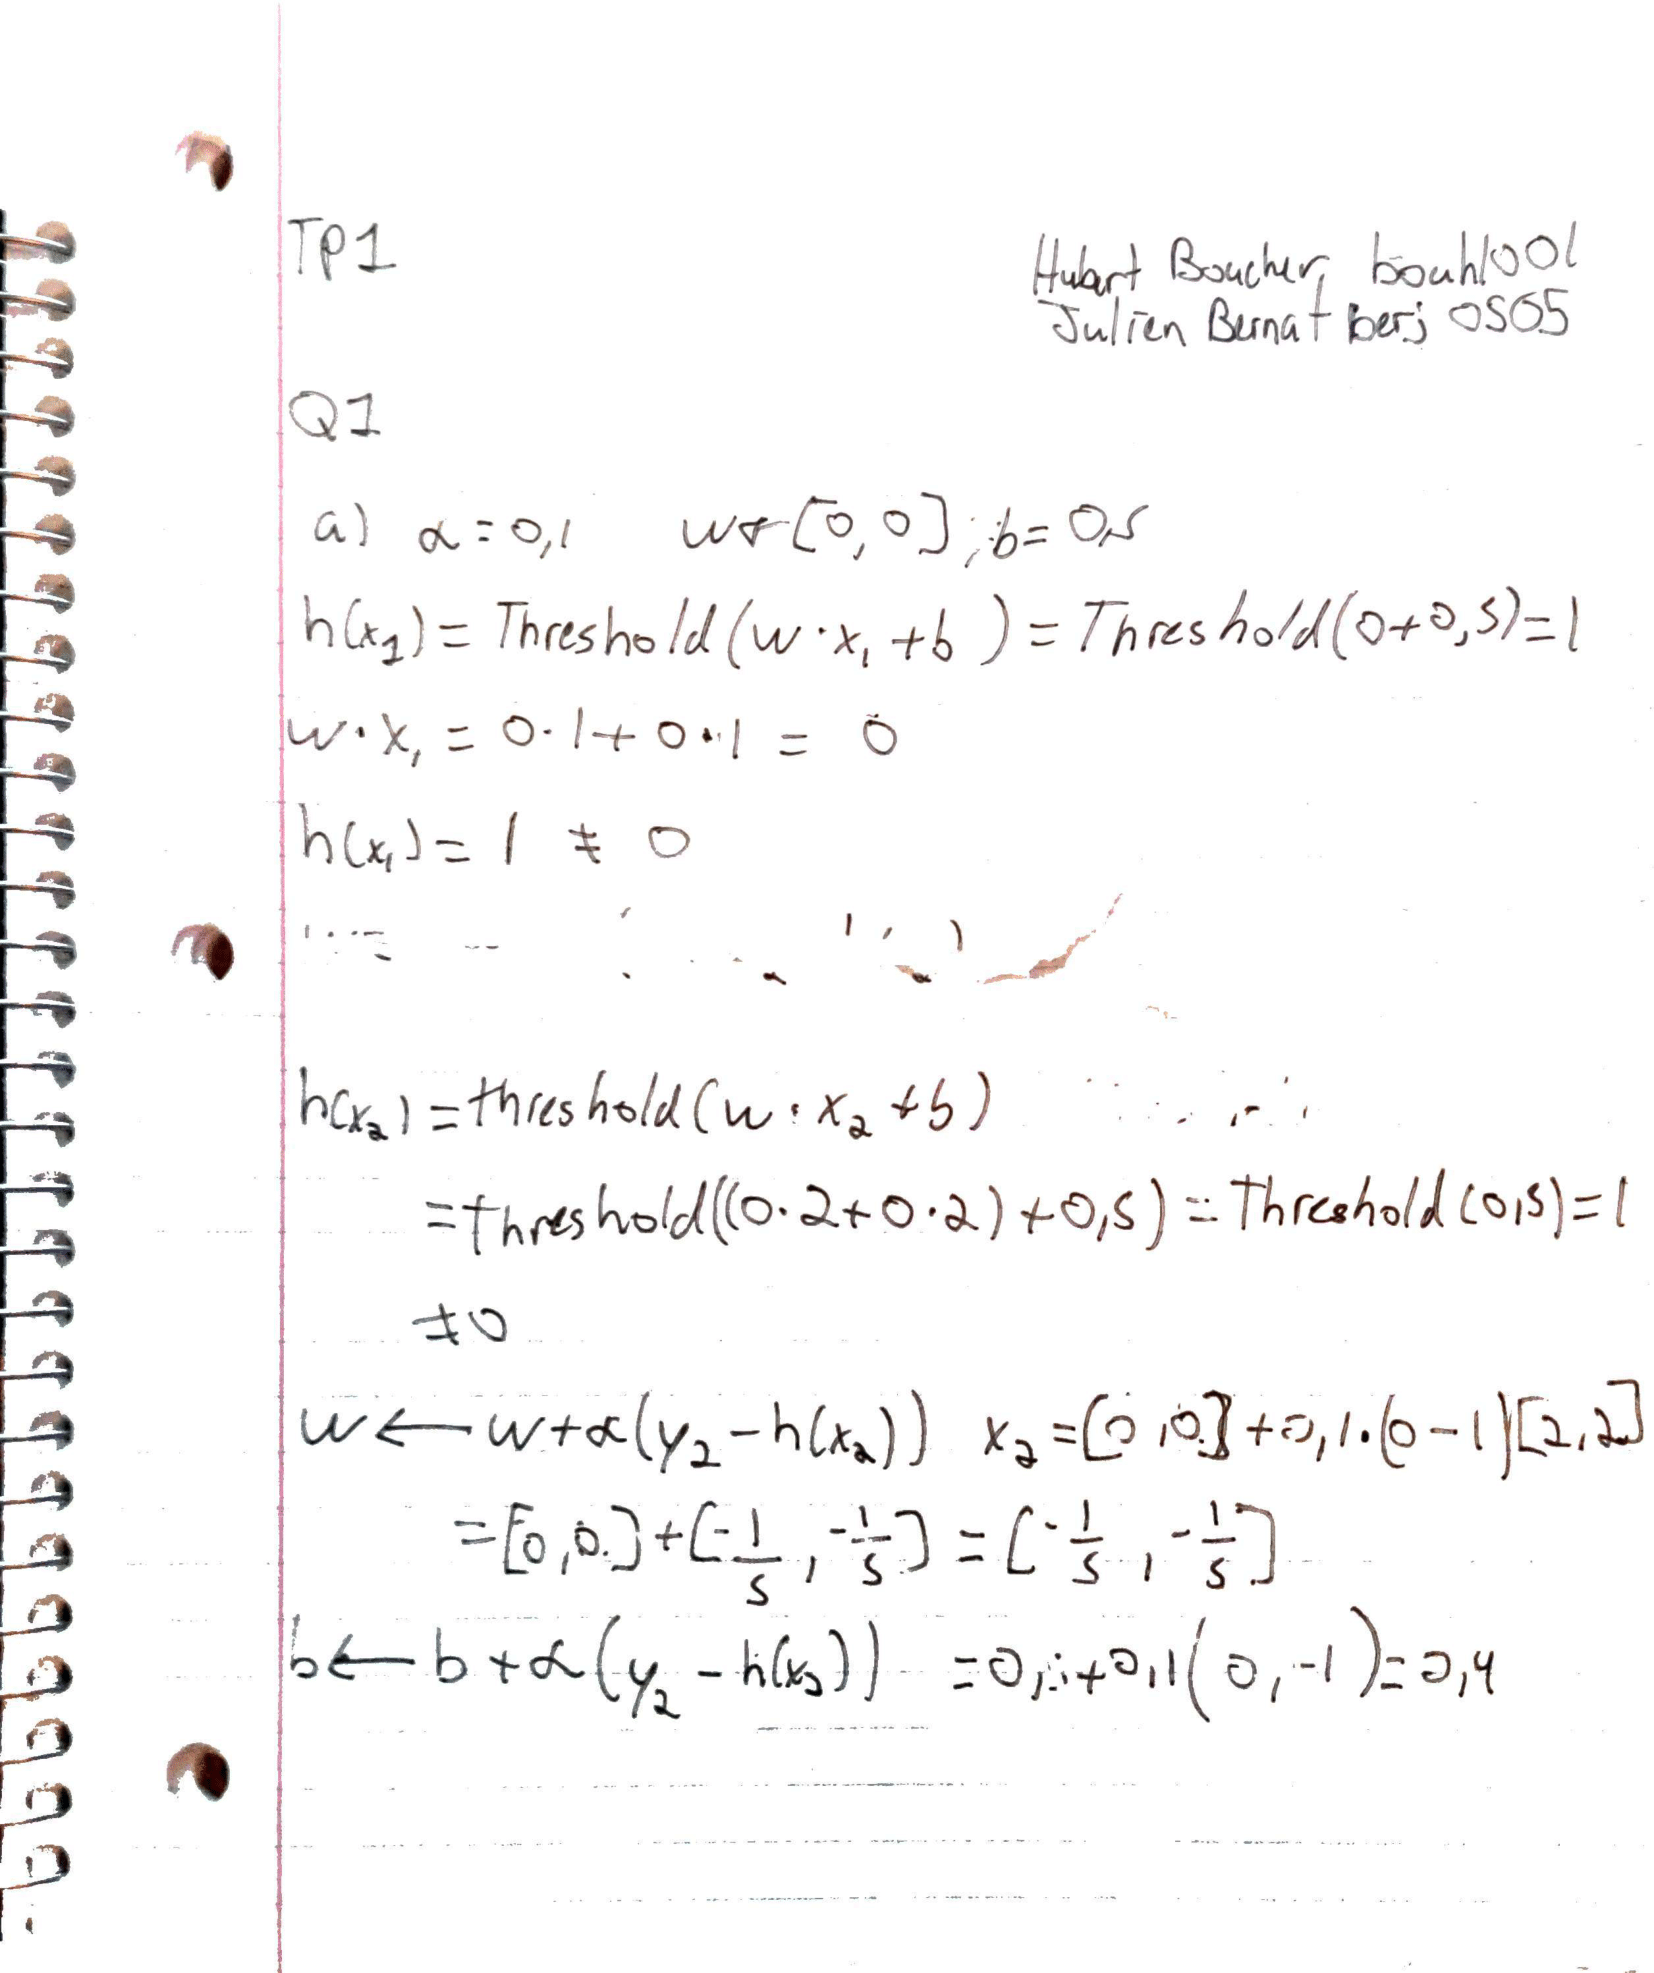 TP1
Hubart Boucher, bouh1001
Julien Bernat berj 0505
Q1
a) α = 0,1 w ← [0, 0] ; b = 0,5
h(x₁) = Threshold (w · x₁ + b ) = Threshold(0+0,5)=1
w · x₁ = 0·1 + 0·1 = 0
h(x₁) = 1 ≠ 0
h(x₂) = threshold (w · x₂ + b)
= threshold((0·2+0·2)+0,5) = Threshold (0,5)=1
≠0
w ← w + α(y₂ - h(x₂)) x₂ = [0 ,0] + 0,1·(0-1)[2,2]
= [0,0] + [-1/5 , -1/5] = [-1/5 , -1/5]
b ← b + α(y₂ - h(x₂)) = 0, + 0,1( 0,-1 ) = 0,4